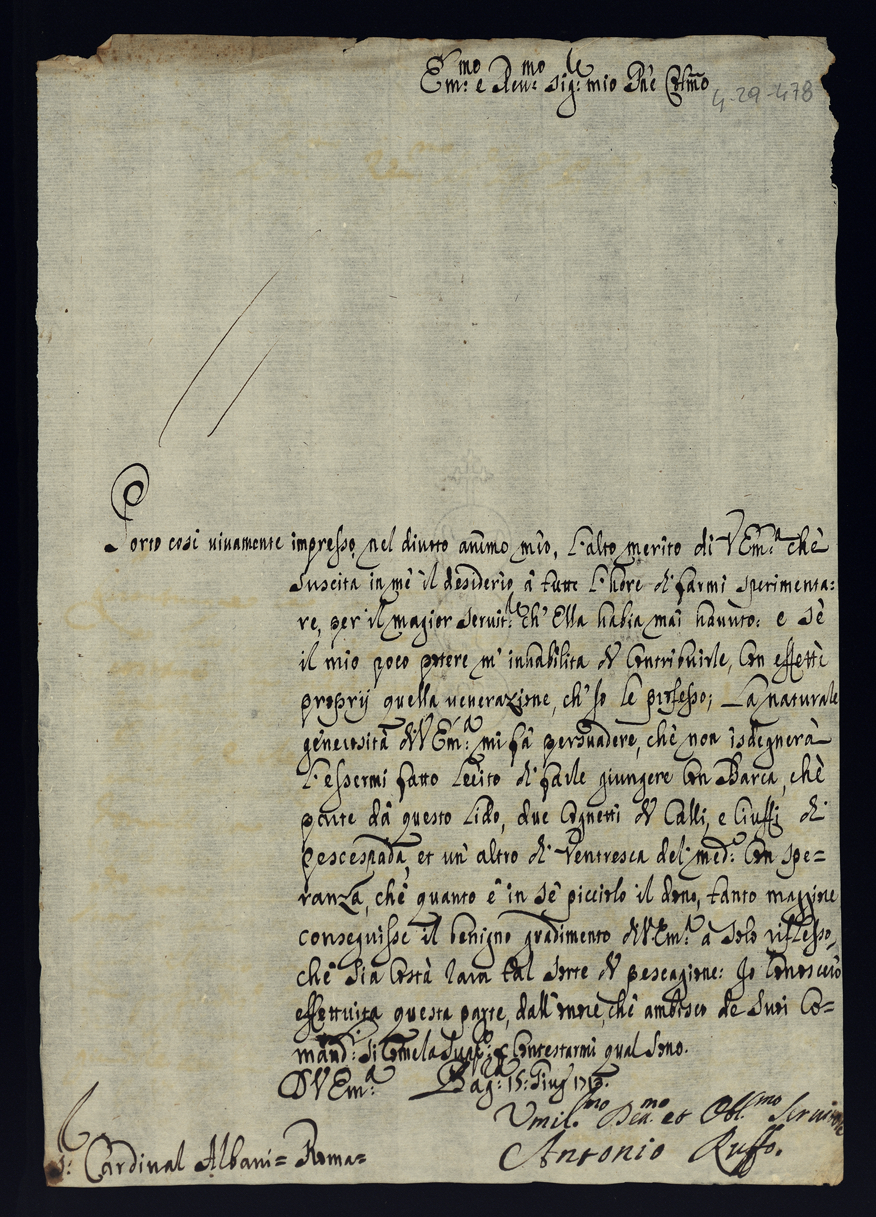 Em:mo e Reu:mo Sig:re mio Pne Colmo
4-29-478
Porto così viuamente impresso nel diuoto animo mio, l'alto merito di VEm:a chè
suscita in mè il desiderio à tutte l'hore di farmi sperimenta:
re, per il magior Seruit:re ch'Ella habia mai hauuto: e sè
il mio poco potere m'inhabilita di contribuirle, con effetti
proprij quella uenerazione, ch'Io le professo; La naturale
generosità di VEm:a mi fà persuadere, chè non isdegnerà
l'essermi fatto lecito di farle giungere con Barca, chè
parte dà questo Lido, due Cognetti di Calli, e Ciuffi di
pescespada, et un'altro di Ventresca del med:o con spe=
ranza, chè quanto è in sè picciolo il dono, tanto maggiore
conseguisse il benigno gradimento di VEm:a à solo riflesso,
chè sia costà rara tal sorte di pescagione: Io conoscerò
effettuita questa parte, dall'onore, chè ambisco de suoi Co=
mand:i contestarmi qual sono.
Di VEm:a Bag:ra 15: Giug:o 1713:
Vmil:mo Deu:mo et Obl:mo Seruitore
Antonio Ruffo.
S: Cardinal Albani= Roma=